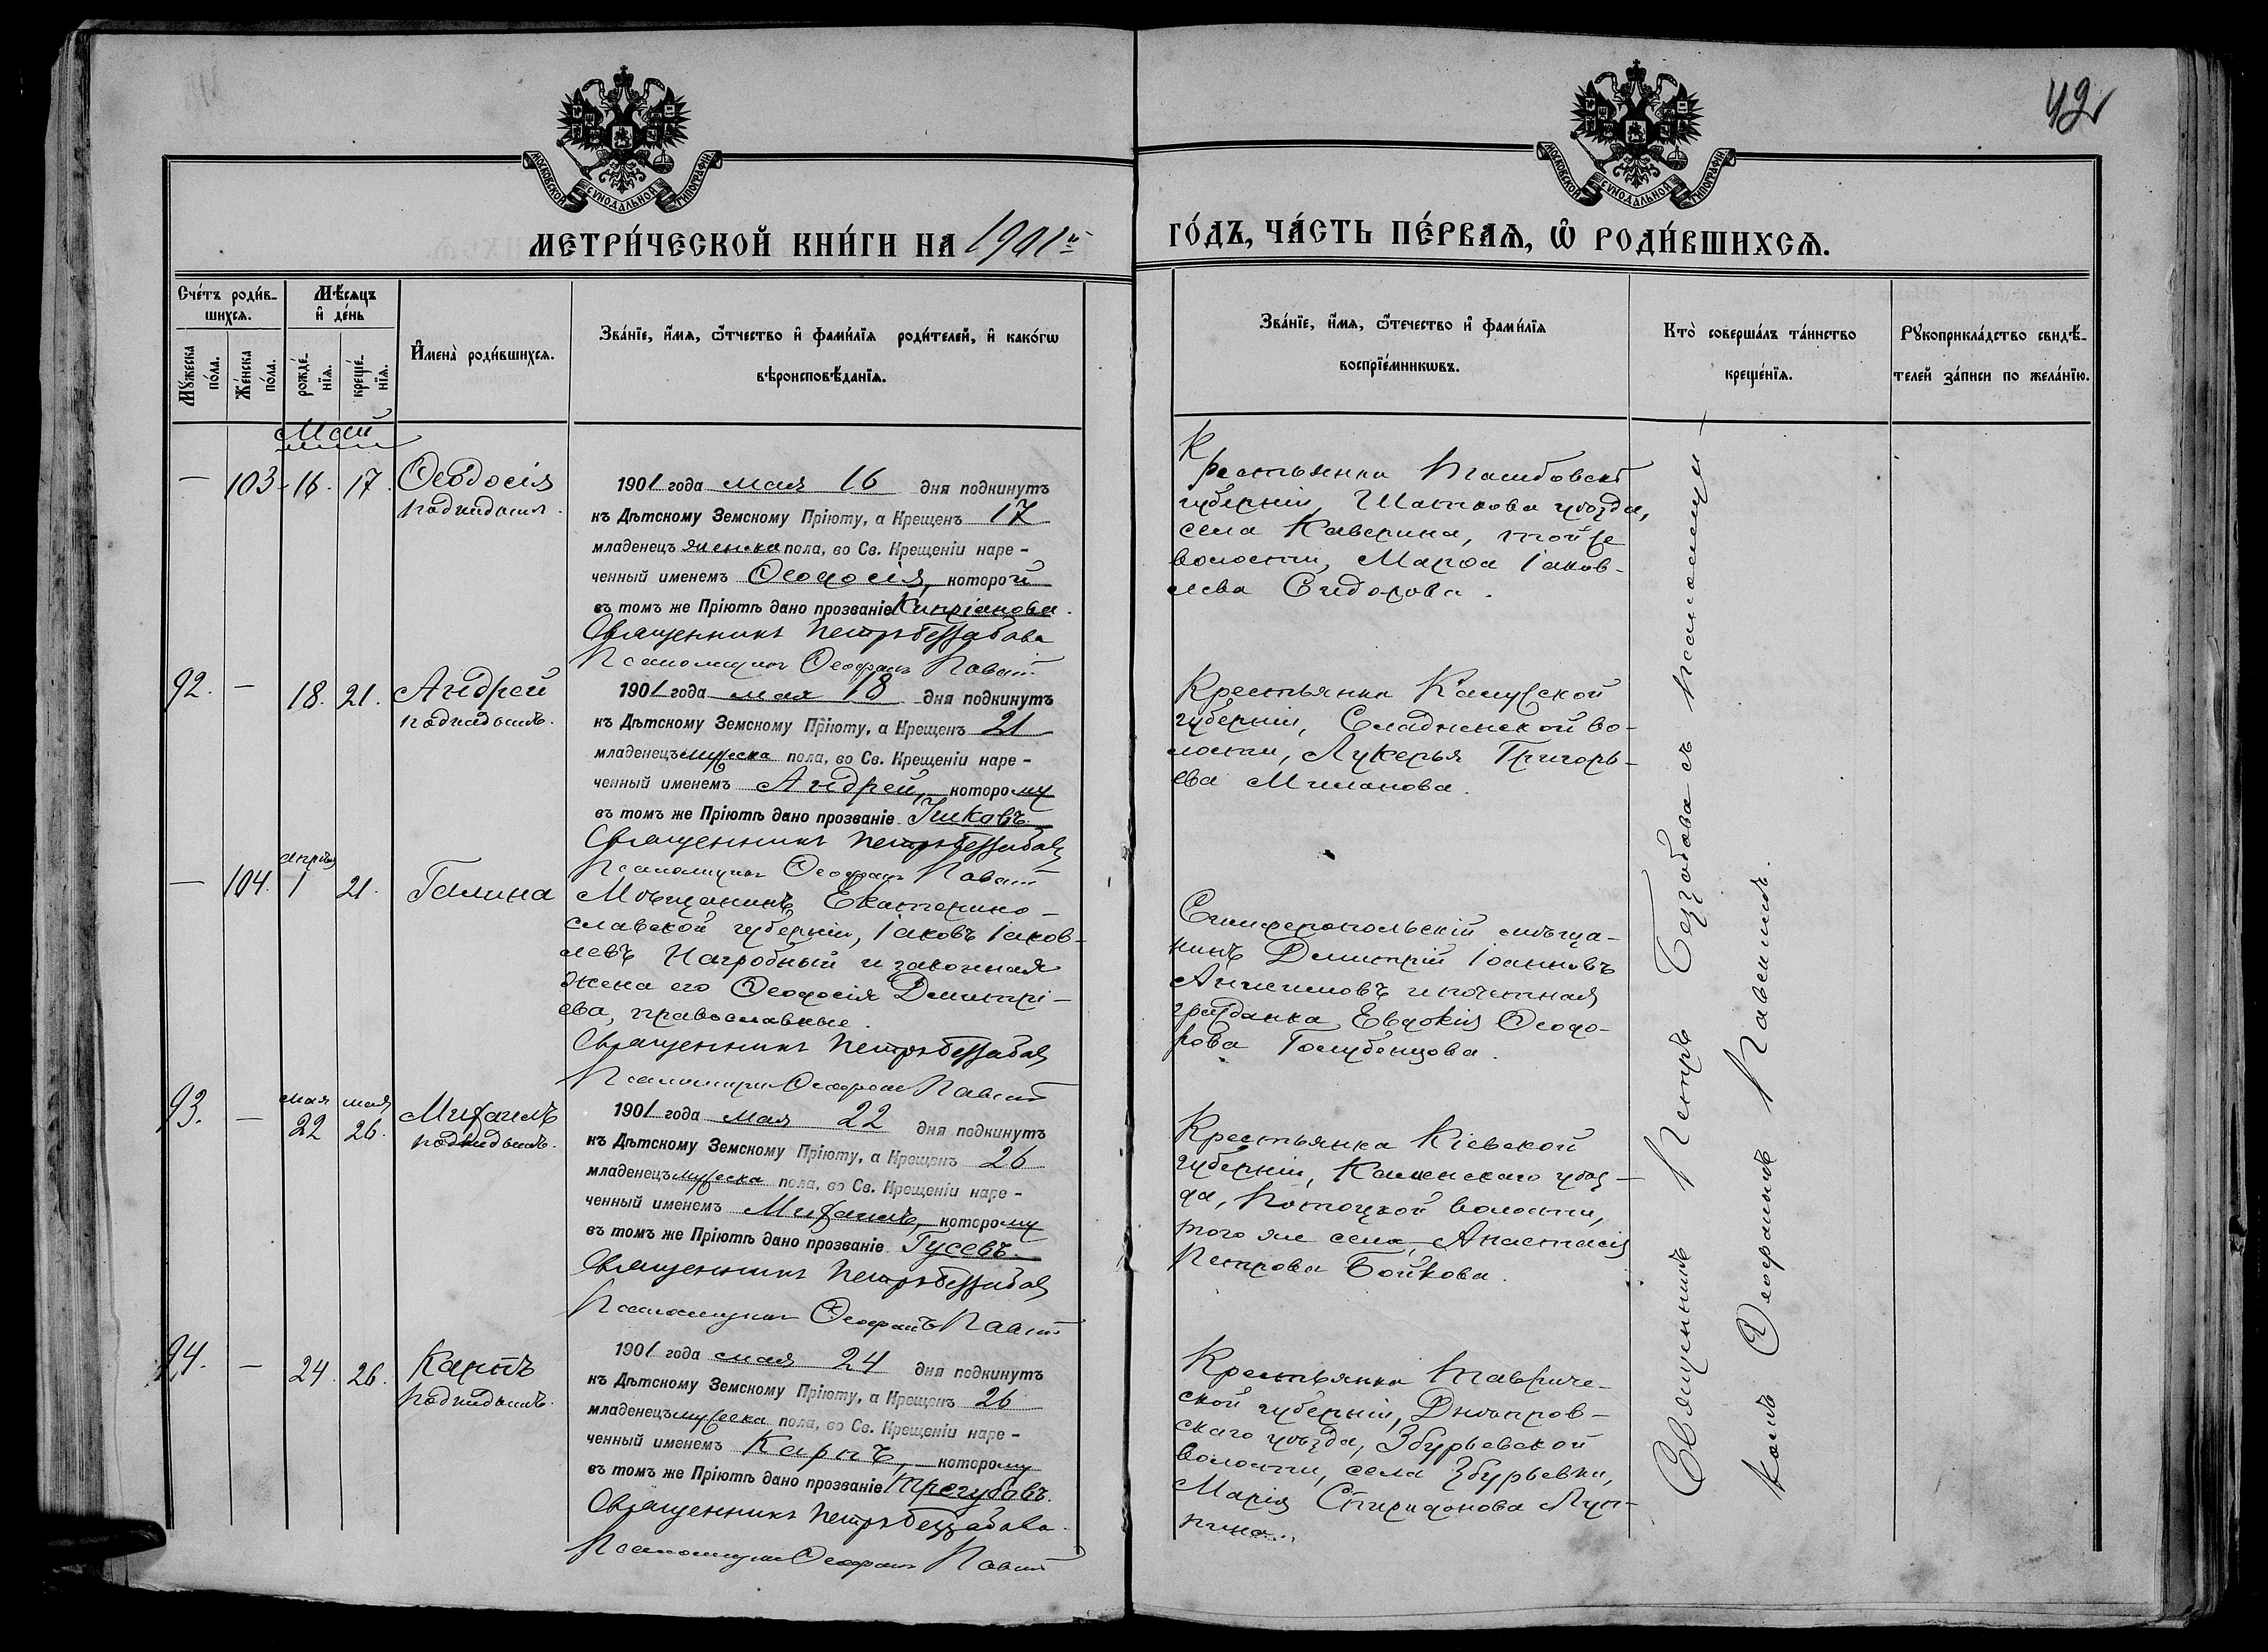 42
МОСКОВСКОЙ СѴНОДАЛЬНОЙ ТИПОГРАФІИ.
МОСКОВСКОЙ СѴНОДАЛЬНОЙ ТИПОГРАФІИ.
МЕТРИ́ЧЕСКОЙ КНИ́ГИ НА 1901й
ГО́ДЪ, ЧА́СТЬ ПЕ́РВАѦ, Ѡ РОДИ́ВШИХСѦ.
Сче́тъ роди́в-
шихсѧ.
Мѣ́сѧцъ
и де́нь
Мꙋ́жеска
по́ла.
Же́нска
по́ла.
рожде́-
нїѧ.
креще́-
нїѧ.
И҆мена̀ роди́вшихсѧ.
Зва́нїе, и҆́мѧ, ѿтчество и҆ фами́лїѧ роди́телей, и҆ како́гѡ
вѣроисповѣ́данїѧ.
Зва́нїе, и҆́мѧ, ѿтечество и҆ фами́лїѧ
воспрїе́мникѡвъ.
Кто̀ соверша́лъ та́инство
креще́нїѧ.
Рꙋкоприкла́дство свидѣ́-
телей за́писи по жела́нїю.
Май
— 103 16. 17. Ѳеодосія
подкидышъ.
1901 года мая 16 дня подкинутъ
къ Дѣтскому Земскому Пріюту, а Крещенъ 17
младенецъ женска пола, во Св. Крещеніи наре-
ченный именемъ Ѳеодосія, которой
въ томъ же Пріютѣ дано прозваніе Кипріанова.
Священникъ Петръ Беззабава
Псаломщикъ Ѳеофанъ
Крестьянка Тамбовской
губерніи, Шатскова уѣзда,
села Каверина, той же
волости, Марѳа Іаков-
лева Сидорова.
92. — 18. 21. Андрей
подкидышъ.
1901 года мая 18 дня подкинутъ
къ Дѣтскому Земскому Пріюту, а Крещенъ 21
младенецъ мужеска пола, во Св. Крещеніи наре-
ченный именемъ Андрей, которому
въ томъ же Пріютѣ дано прозваніе
Священникъ Петръ Беззабава
Псаломщикъ Ѳеофанъ
Крестьянка Калужской
губерніи, во-
лости, Лукерья Григорь-
ева Миланова.
апрѣля
— 104. 1 21. Галина
Мѣщанинъ Екатерино-
славской губерніи, Іаковъ Іаков-
левъ Нагробный и законная
жена его Ѳеодосія Димитрі-
ева, православные.
Священникъ Петръ Беззабава
Псаломщикъ Ѳеофанъ
Симферопольскій мѣща-
нинъ Димитрій Іоанновъ
Анисимовъ и почетная
гражданка Евдокія Ѳеодо-
рова Голубенцова.
мая мая
93. — 22 26. Михаилъ
подкидышъ.
1901 года мая 22 дня подкинутъ
къ Дѣтскому Земскому Пріюту, а Крещенъ 26
младенецъ мужеска пола, во Св. Крещеніи наре-
ченный именемъ Михаилъ, которому
въ томъ же Пріютѣ дано прозваніе Гусевъ.
Священникъ Петръ Беззабава
Псаломщикъ Ѳеофанъ
Крестьянка Кіевской
губерніи, Каменскаго уѣз-
да, Потоцкой волости,
того же села, Анастасія
Петрова Бойкова.
94. — 24. 26. Карпъ
подкидышъ.
1901 года мая 24 дня подкинутъ
къ Дѣтскому Земскому Пріюту, а Крещенъ 26
младенецъ мужеска пола, во Св. Крещеніи наре-
ченный именемъ Карпъ, которому
въ томъ же Пріютѣ дано прозваніе Трегубовъ.
Священникъ Петръ Беззабава.
Псаломщикъ Ѳеофанъ
Крестьянка Тавриче-
ской губерніи, Днѣпров-
скаго уѣзда, Збурьевской
волости, села Збурьевки,
Марія Спиридонова Луп-
кина.
Священникъ Петръ Беззабава съ псаломщи-
комъ Ѳеофаномъ